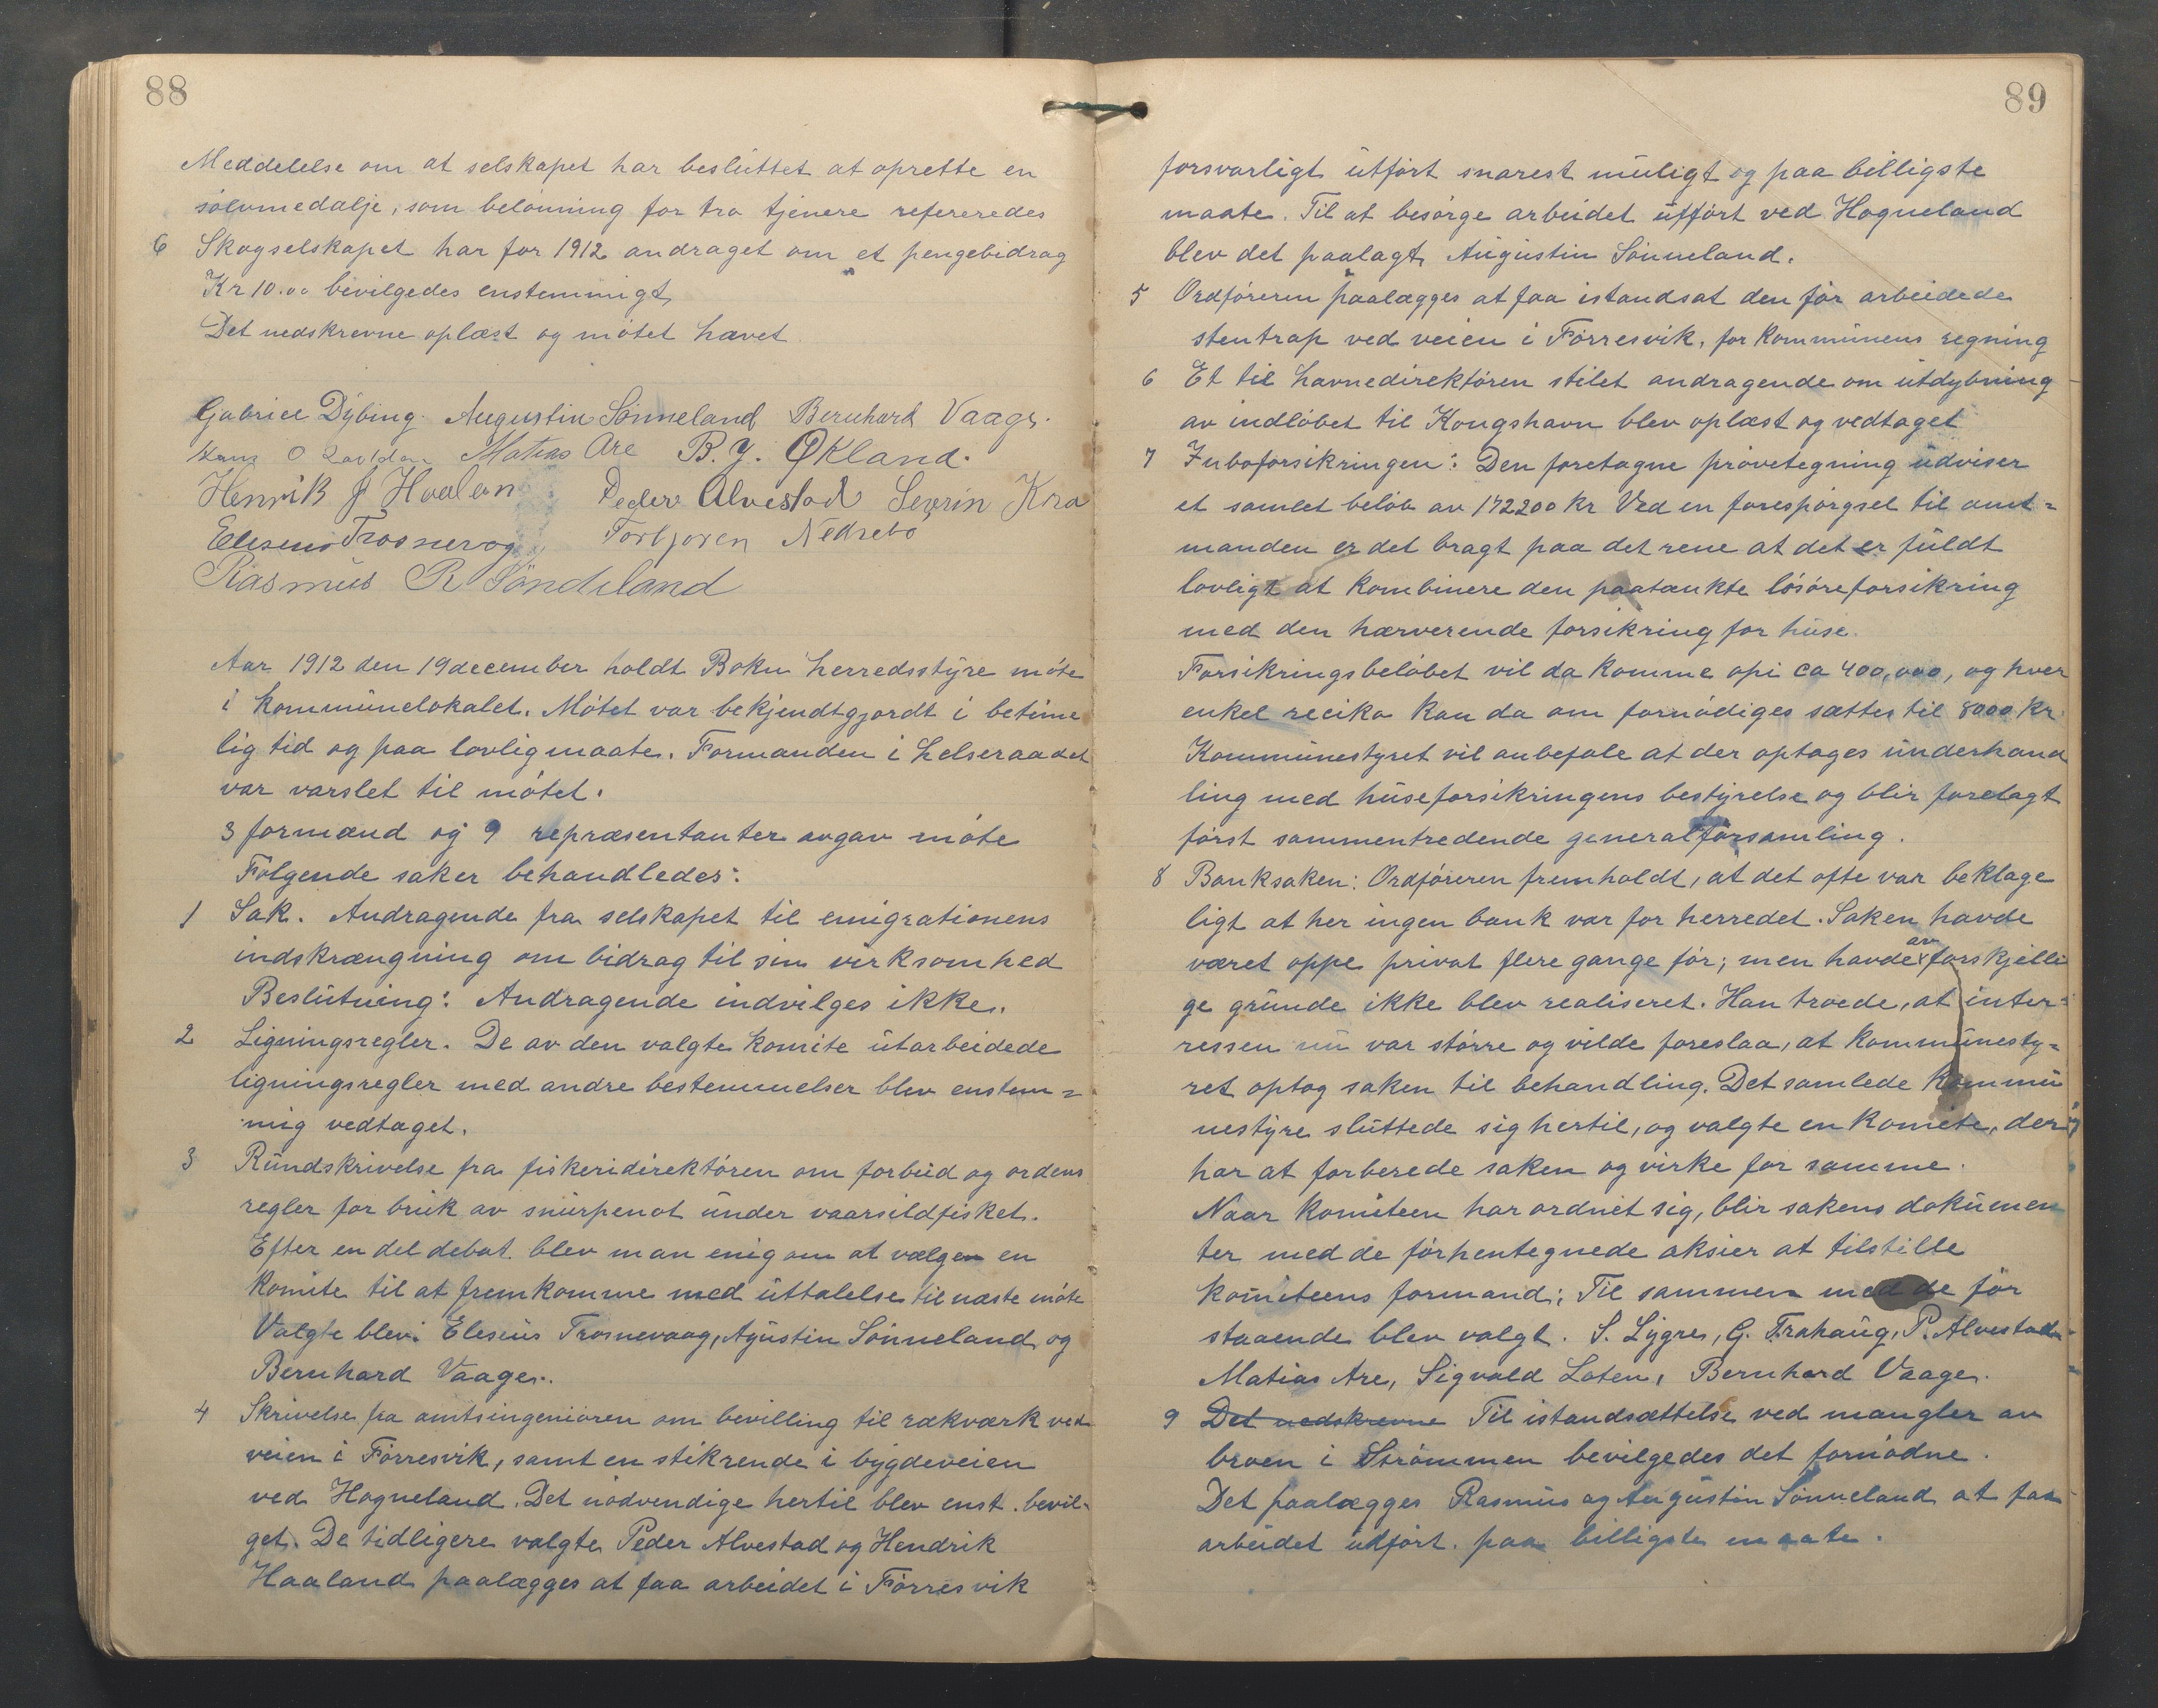 88
Meddelelse om at selskapet har besluttet at oprette en
sølvmedalje, som belønning for tro tjenere refereredes
6 Skogselskapet har for 1912 andraget om et pengebidrag
Kr 10.00 bevilgedes enstemmigt,
Det nedskrevne oplæst og møtet hævet.
Gabriel Dybing. Augustin Sønneland Bernhard Vaage.
Hans O Matias Are B. Y. Økland.
Henrik J Haaland Peder Alvestad Severin Kra
Eleseus Trosnevag Torbjoren Nedrebø
Rasmus R Søndeland
Aar 1912 den 19 december holdt Bokn herredsstyre møte
i kommunelokalet. Møtet var bekjendtgjordt i betime
lig tid og paa lovlig maate. Formanden i helseraadet
var varslet til møtet.
3 formænd og 9 repræsentanter avgav møte
Følgende saker behandledes:
1 Sak. Andragende fra selskapet til emigrationens
indskrængning om bidrag til sin virksomhed
Beslutning: Andragende indvilges ikke.
2 Ligningsregler. De av den valgte komite utarbeidede
ligningsregler med andre bestemmelser blev enstem=
mig vedtaget.
3 Rundskrivelse fra fiskeridirektøren om forbud og ordens
regler for bruk av snurpenot under vaarsildfisket.
Efter en del debat blev man enig om at vælgen en
komite til at fremkomme med uttalelse til næste møte
Valgte blev: Eleseus Trosnevaag, Agustin Sønneland og
Bernhard Vaage.
4 Skrivelse fra amtsingeniøren om bevilling til rækværk ved
veien i Førresvik, samt en stikrende i bygdeveien
ved Hogneland. Det nødvendige hertil blev enst. bevil-
get. De tidligere valgte Peder Alvestad og Hendrik
Haaland paalægges at faa arbeidet i Førresvik
89
forsvarligt utført snarest muligt og paa billigste
maate. Til at besørge arbeidet utført ved Hogneland
blev det paalagt Augustin Sønneland.
5 Ordføreren paalægges at faa istandsat den før arbeidede
stentrap ved veien i Førresvik, for kommunens regning
6 Et til havnedirektøren stilet andragende om utdybning
av indløbet til Kongshavn blev oplæst og vedtaget
7 Inboforsikringen: Den foretagne prøvetegning udviser
et samlet beløb av 172200 kr Ved en forespørgsel til amt=
manden er det bragt paa det rene at det er fuldt
lovligt at kombinere den paatænkte løsøreforsikring
med den hærverende forsikring for huse.
Forsikringsbeløbet vil da komme opi ca 400,000, og hver
enkel reciko kan da om fornødiges sættes til 8000 kr
Kommunestyret vil anbefale at der optages underhand
ling med huseforsikringens bestyrelse og blir forelagt
først sammentredende generalforsamling.
8 Banksaken: Ordføreren fremholdt, at det ofte var beklage
ligt at her ingen bank var for herredet. Saken havde
været oppe privat flere gange før; men havde av forskjelli
ge grunde ikke blev realiseret. Han troede, at inter=
ressen nu var større og vilde foreslaa, at kommunesty=
ret optog saken til behandling. Det samlede kommu
nestyre sluttede sig hertil, og valgte en komite, der
har at forberede saken og virke for samme.
Naar komiteen har ordnet sig, blir sakens dokumen
ter med de førhentegnede aksier at tilstille
komiteens formand; Til sammen med de før
staaende blev valgt. S. Lygre, G. Trahaug, P. Alvestad
Matias Are, Sigvald Loten, Bernhard Vaage.
9 Det nedskrevne Til istandsættelse ved mangler av
broen i Strømmen bevilgedes det fornødne.
Det paalægges Rasmus og Augustin Sønneland at faa
arbeidet udført paa billigste maate.